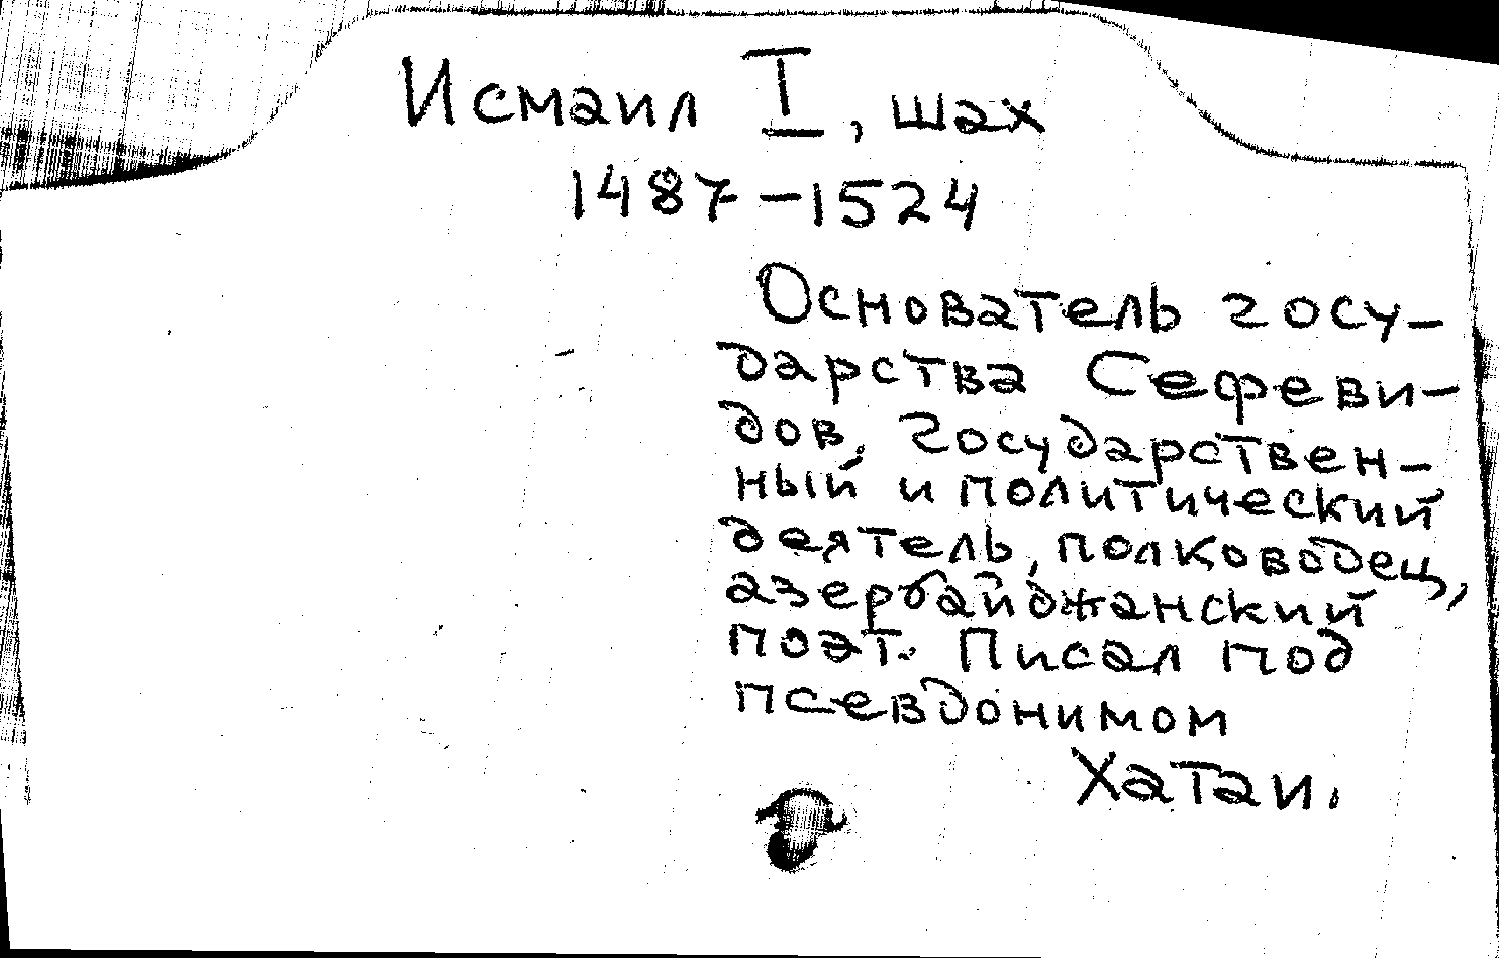 Исмаил I, шах
1487-1524
Основатель госу-
дарства Сефеви-
дов, государствен-
ный и политический
деятель, полководец,
азербайджанский
поэт. Писал под
псевдонимом
Хатаи.